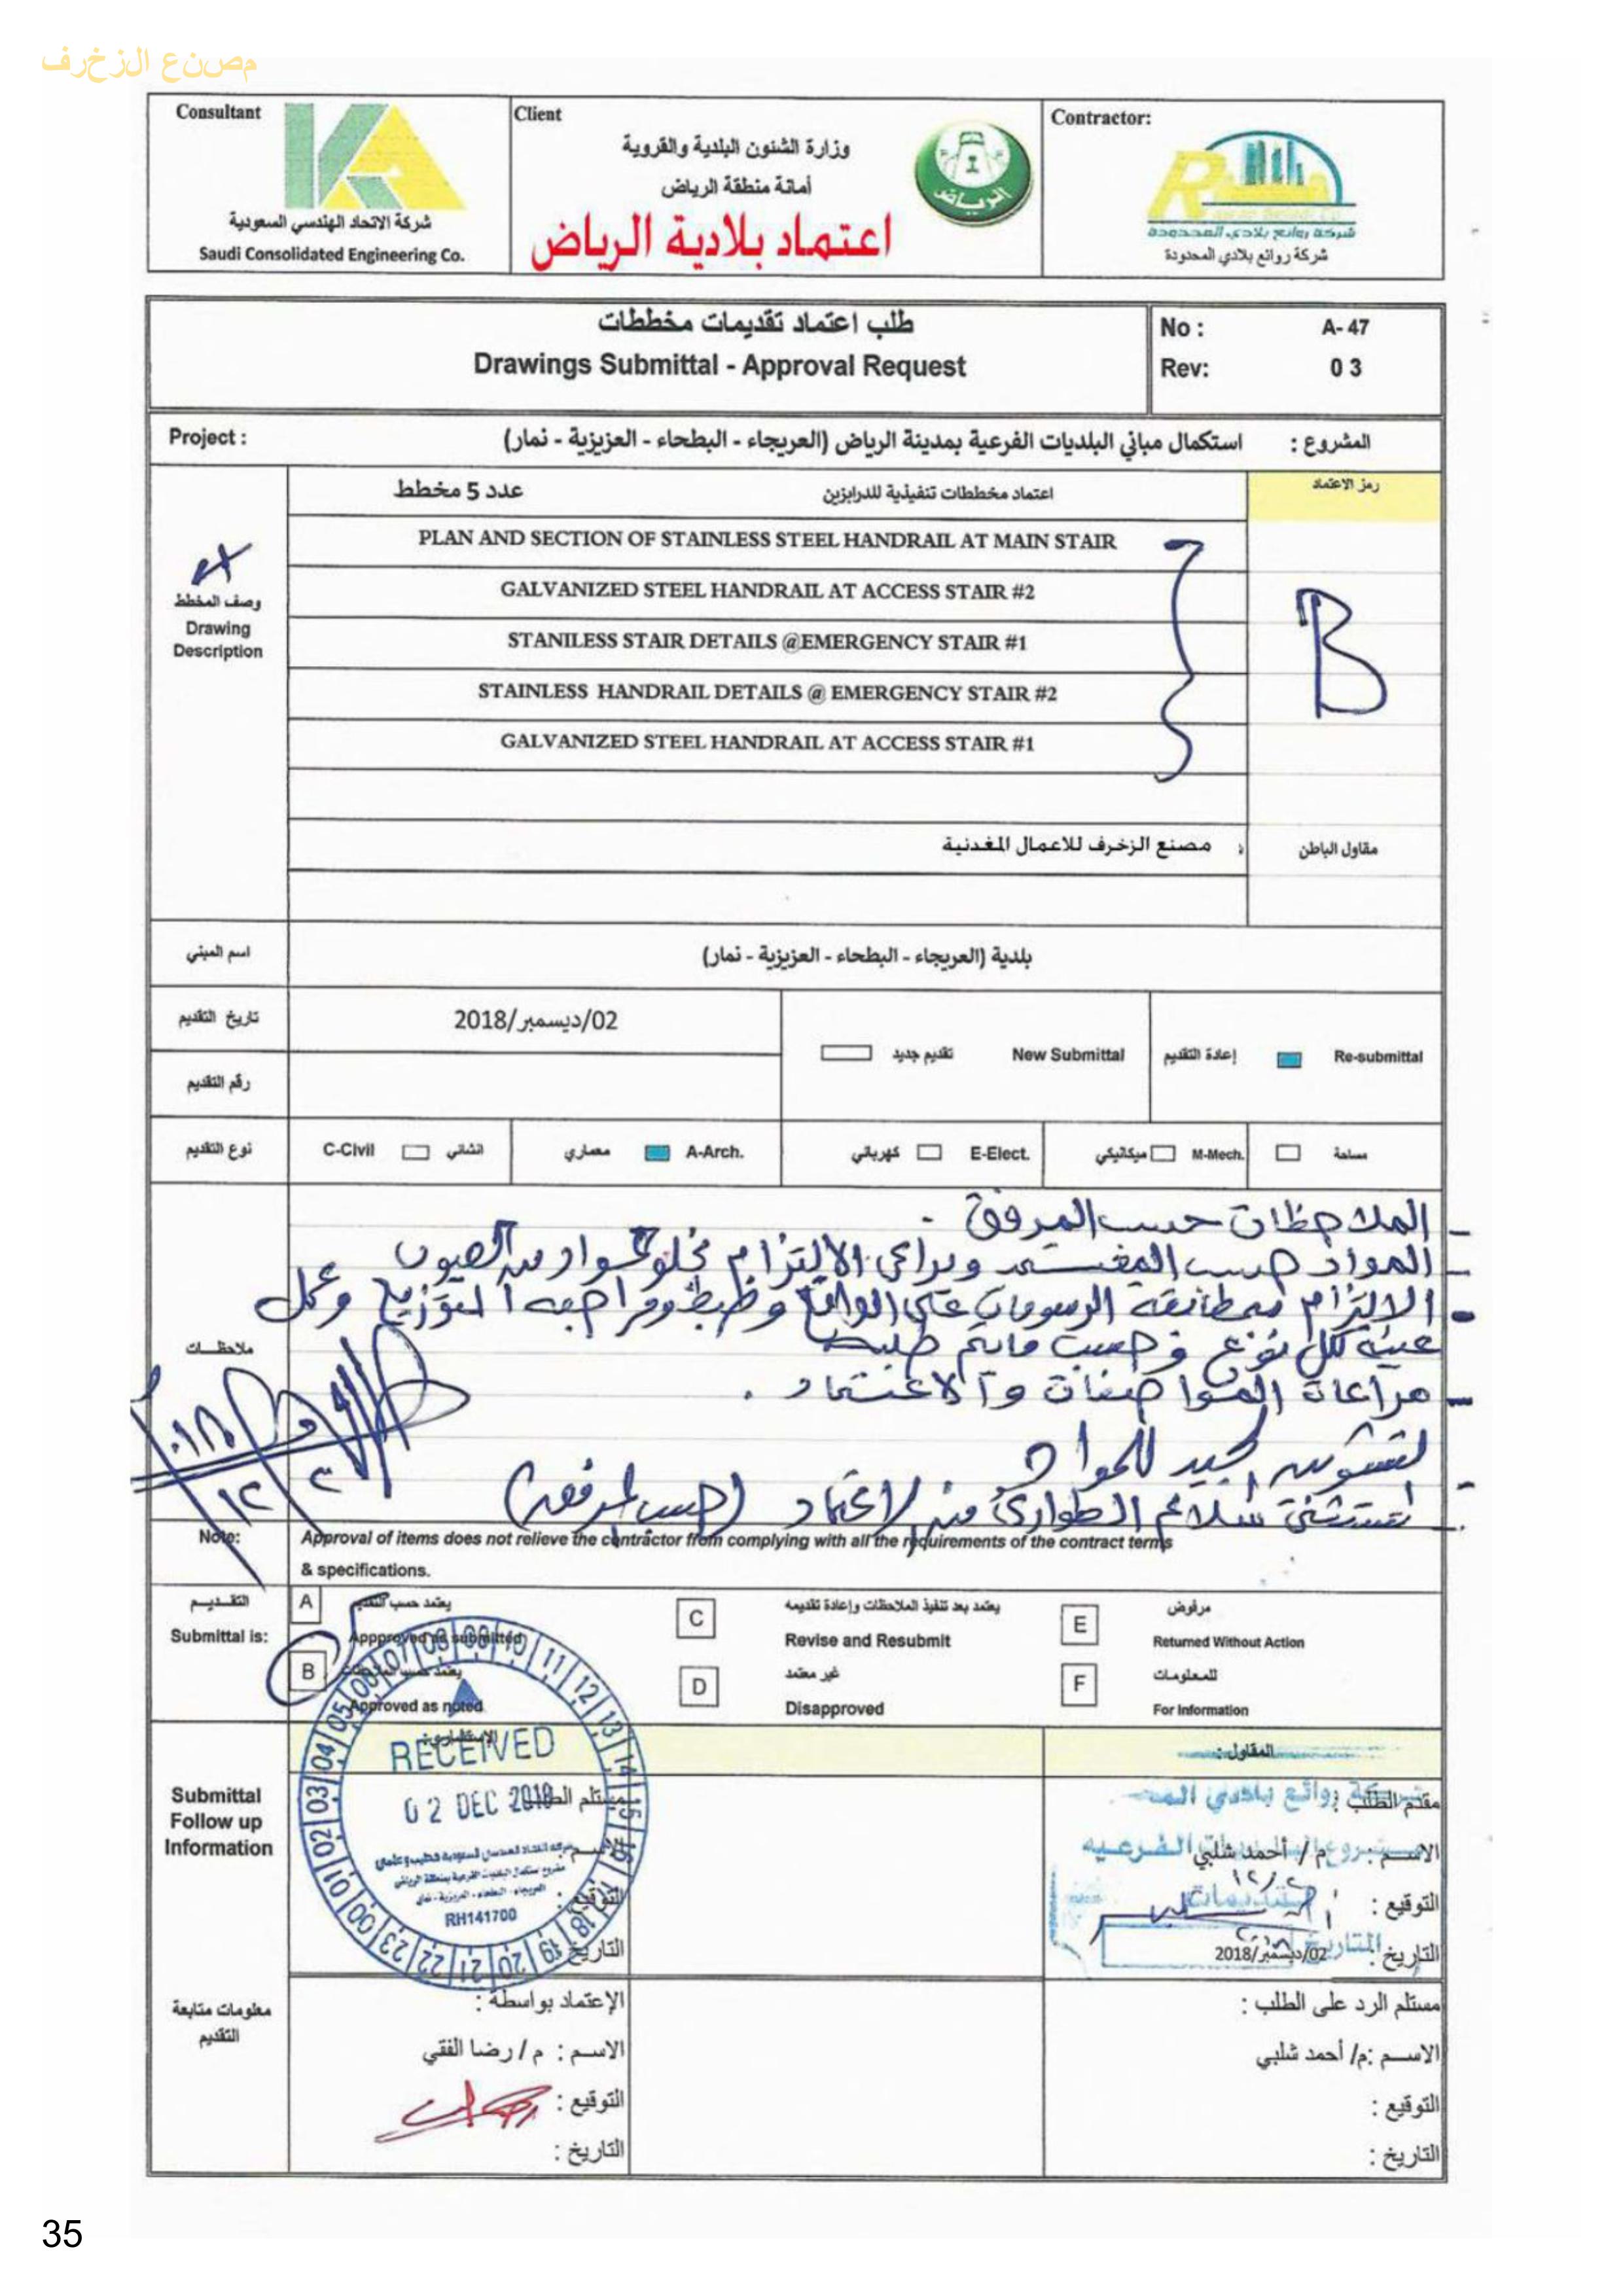 مصنع الزخرف
Consultant
شركة الاتحاد الهندسي السعودية
Saudi Consolidated Engineering Co.
Client
وزارة الشئون البلدية والقروية
أمانة منطقة الرياض
اعتماد بلادية الرياض
الرياض
Contractor:
شركة روائع بلادي المحدودة
شركة روائع بلادي المحدودة
طلب اعتماد تقديمات مخططات
Drawings Submittal - Approval Request
No : A- 47
Rev: 0 3
Project : استكمال مباني البلديات الفرعية بمدينة الرياض (العريجاء - البطحاء - العزيزية - نمار) المشروع :
وصف المخطط
Drawing
Description
اعتماد مخططات تنفيذية للدرابزين عدد 5 مخطط
رمز الاعتماد
PLAN AND SECTION OF STAINLESS STEEL HANDRAIL AT MAIN STAIR
GALVANIZED STEEL HANDRAIL AT ACCESS STAIR #2
STANILESS STAIR DETAILS @EMERGENCY STAIR #1
STAINLESS HANDRAIL DETAILS @ EMERGENCY STAIR #2
GALVANIZED STEEL HANDRAIL AT ACCESS STAIR #1
B
مقاول الباطن
مصنع الزخرف للاعمال المغدنية
اسم المبني
بلدية (العريجاء - البطحاء - العزيزية - نمار)
تاريخ التقديم
02/ديسمبر/2018
تقديم جديد New Submittal
إعادة التقديم Re-submittal
رقم التقديم
نوع التقديم
C-Civil انشائي
معماري A-Arch.
كهربائي E-Elect.
ميكانيكي M-Mech.
مساحة
ملاحظات
- الملاحظات حسب المرفق .
- المواد حسب المعتمد ويراعى الالتزام بخلو المواد من العيوب
- الالتزام بمطابقة الرسومات على الواقع وضبط ومراجعة التوزيع وعمل
عينة لكل نوع وحسب مايتم طلبه
- مراعاة المواصفات والاعتماد .
للمواد
- تستثنى سلالم الطوارئ من الاعتماد (حسب المرفق)
Note: Approval of items does not relieve the contractor from complying with all the requirements of the contract terms
& specifications.
التقديم
Submittal is:
A يعتمد حسب التقديم
Appproved as submitted
B
Approved as noted
C يعتمد بعد تنفيذ الملاحظات وإعادة تقديمه
Revise and Resubmit
D غير معتمد
Disapproved
E مرفوض
Returned Without Action
F للمعلومات
For Information
Submittal
Follow up
Information
معلومات متابعة
التقديم
RECEIVED
02 DEC 2018
RH141700
00 01 02 03 04 05 06 07 08 09 10 11 12 13 14 15 16 17 18 19 20 21 22 23
التاريخ
المقاول :
مقدم الطلب :
الاسم : م / أحمد شلبي
التوقيع :
التاريخ : 02/ديسمبر/2018
الإعتماد بواسطة :
الاسم : م / رضا الفقي
التوقيع :
التاريخ :
مستلم الرد على الطلب :
الاسم :م/ أحمد شلبي
التوقيع :
التاريخ :
35